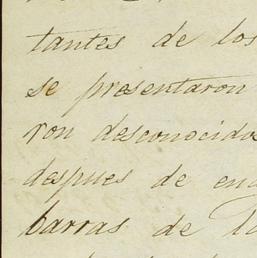 tantes de los
se presentaron
ron desconocido
despues de
barras de